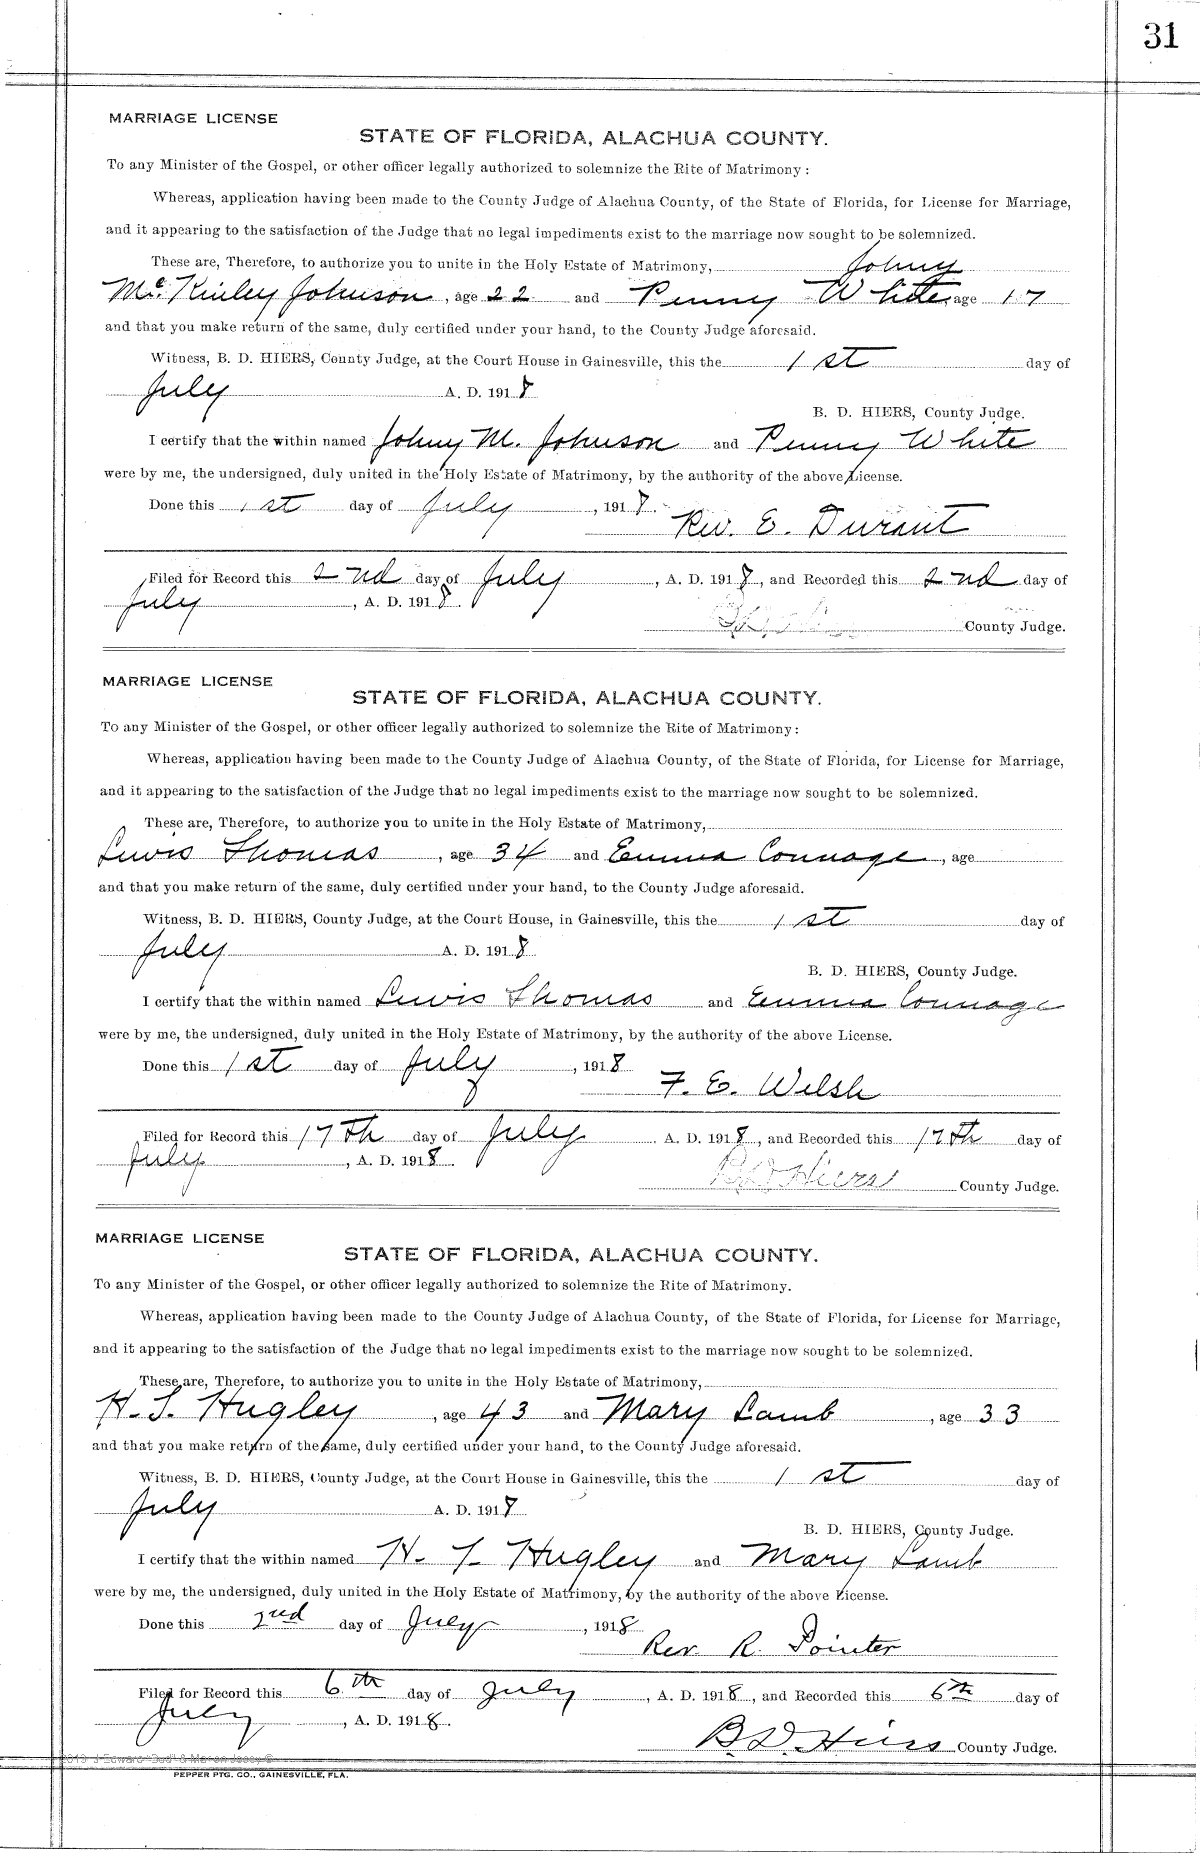 31
MARRIAGE LICENSE
STATE OF FLORIDA, ALACHUA COUNTY.
To any Minister of the Gospel, or other officer legally authorized to solemnize the Rite of Matrimony:
Whereas, application having been made to the County Judge of Alachua County, of the State of Florida, for License for Marriage,
and it appearing to the satisfaction of the Judge that no legal impediments exist to the marriage now sought to be solemnized.
These are, Therefore, to authorize you to unite in the Holy Estate of Matrimony, Johny
McKinley Johnson, age 22 and Penny White, age 17
and that you make return of the same, duly certified under your hand, to the County Judge aforesaid.
Witness, B. D. HIERS, County Judge, at the Court House in Gainesville, this the 1st day of
July A. D. 1918
B. D. HIERS, County Judge.
I certify that the within named Johny M. Johnson and Penny White
were by me, the undersigned, duly united in the Holy Estate of Matrimony, by the authority of the above License.
Done this 1st day of July, 1918.
Rev. E. Durant
Filed for Record this 2nd day of July, A. D. 1918, and Recorded this 2nd day of
July, A. D. 1918.
County Judge.
MARRIAGE LICENSE
STATE OF FLORIDA, ALACHUA COUNTY.
To any Minister of the Gospel, or other officer legally authorized to solemnize the Rite of Matrimony:
Whereas, application having been made to the County Judge of Alachua County, of the State of Florida, for License for Marriage,
and it appearing to the satisfaction of the Judge that no legal impediments exist to the marriage now sought to be solemnized.
These are, Therefore, to authorize you to unite in the Holy Estate of Matrimony,
Lewis Thomas, age 34 and Emma Connage, age
and that you make return of the same, duly certified under your hand, to the County Judge aforesaid.
Witness, B. D. HIERS, County Judge, at the Court House, in Gainesville, this the 1st day of
July A. D. 1918
B. D. HIERS, County Judge.
I certify that the within named Lewis Thomas and Emma Connage
were by me, the undersigned, duly united in the Holy Estate of Matrimony, by the authority of the above License.
Done this 1st day of July, 1918
F. E. Welsh
Filed for Record this 17th day of July. A. D. 1918, and Recorded this 17th day of
July, A. D. 1918.
B D Hiers County Judge.
MARRIAGE LICENSE
STATE OF FLORIDA, ALACHUA COUNTY.
To any Minister of the Gospel, or other officer legally authorized to solemnize the Rite of Matrimony.
Whereas, application having been made to the County Judge of Alachua County, of the State of Florida, for License for Marriage,
and it appearing to the satisfaction of the Judge that no legal impediments exist to the marriage now sought to be solemnized.
These are, Therefore, to authorize you to unite in the Holy Estate of Matrimony,
H. T. Hugley, age 43 and Mary Lamb, age 33
and that you make return of the same, duly certified under your hand, to the County Judge aforesaid.
Witness, B. D. HIERS, County Judge, at the Court House in Gainesville, this the 1st day of
July A. D. 1918
B. D. HIERS, County Judge.
I certify that the within named H. T. Hugley and Mary Lamb
were by me, the undersigned, duly united in the Holy Estate of Matrimony, by the authority of the above License.
Done this 2nd day of July, 1918
Rev. R. Pointer
Filed for Record this 6th day of July, A. D. 1918, and Recorded this 6th day of
July, A. D. 1918.
B. D. Hiers County Judge.
PEPPER PTG. CO., GAINESVILLE, FLA.